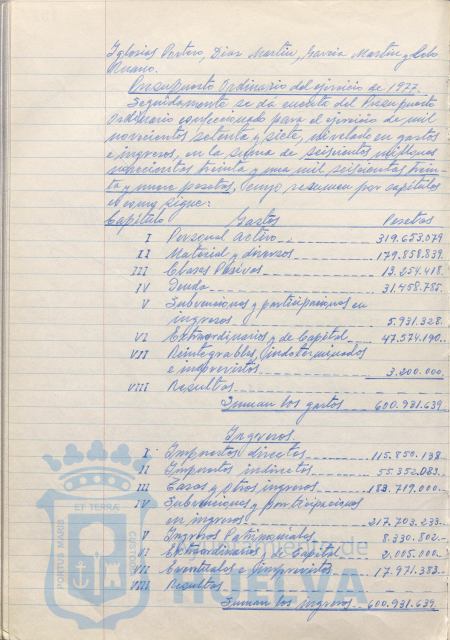 Iglesias Portero, Diaz Martin, Garcia Martin y Lobo
Ruano.
Presupuesto Ordinario del ejercicio de 1977.
Seguidamente se da cuenta del Presupuesto
Ordinario confeccionado para el ejercicio de mil
novecientos setenta y siete, nivelado en gastos
e ingresos, en la suma de seiscientos millones
novecientas treinta y una mil seiscientas trein-
ta y nueve pesetas, cuyo resumen por capitulos
es como sigue:
Capítulo Gastos Pesetas
I Personal activo 319.653.079
II Material y diversos 179.858.839.
III Clases Pasivas 13.254.418.
IV Deuda 31.458.785.
V Subvenciones y participaciones en
ingresos 5.931.328.
VI Extraordinarios y de Capital 47.574.190.
VII Reintegrables, indeterminados
e imprevistos 3.200.000.
VIII Resultas
Suman los gastos 600.931.639.
Ingresos
I Impuestos directos 115.850.138
II Impuestos indirectos 55.352.083.
III Tasas y otros ingresos 183.719.000.
IV Subvenciones y participaciones
en ingresos 217.703.233.
V Ingresos Patrimoniales 8.330.802.
VI Extraordinarios y de Capital 2.005.000.
VII Eventuales e Imprevistos 17.971.383.
VIII Resultas
Suman los ingresos 600.931.639.
ET TERRÆ
PORTUS MARIS
CUSTODIA
de
HUELVA